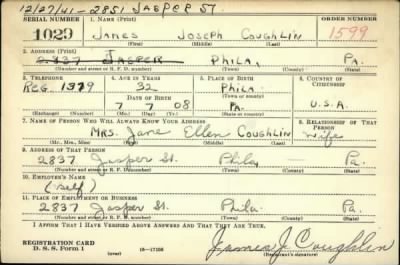 12/27/41-2851 JASPER ST
SERIAL NUMBER 1. NAME (Print) ORDER NUMBER
1029 JAMES JOSEPH COUGHLIN 1599
(First) (Middle) (Last)
2. ADDRESS (Print)
2837 JASPER PHILA, PA.
(Number and street or R. F. D. number) (Town) (County) (State)
3. TELEPHONE 4. AGE IN YEARS 5. PLACE OF BIRTH 6. COUNTRY OF CITIZENSHIP
REG. 1379 32 Phila.
(Town or county)
DATE OF BIRTH
7 7 08 PA. U.S.A.
(Exchange) (Number) (Mo.) (Day) (Yr.) (State or country)
7. NAME OF PERSON WHO WILL ALWAYS KNOW YOUR ADDRESS 8. RELATIONSHIP OF THAT PERSON
MRS. Jane Ellen COUGHLIN Wife
(Mr., Mrs., Miss) (First) (Middle) (Last)
9. ADDRESS OF THAT PERSON
2837 Jasper St. Phila Pa.
(Number and street or R. F. D. number) (Town) (County) (State)
10. EMPLOYER'S NAME
(Self)
11. PLACE OF EMPLOYMENT OR BUSINESS
2837 Jasper St. Phila. Pa.
(Number and street or R. F. D. number) (Town) (County) (State)
I AFFIRM THAT I HAVE VERIFIED ABOVE ANSWERS AND THAT THEY ARE TRUE.
REGISTRATION CARD
D. S. S. FORM 1 (over) 16-17105 James J Coughlin
(Registrant's signature)